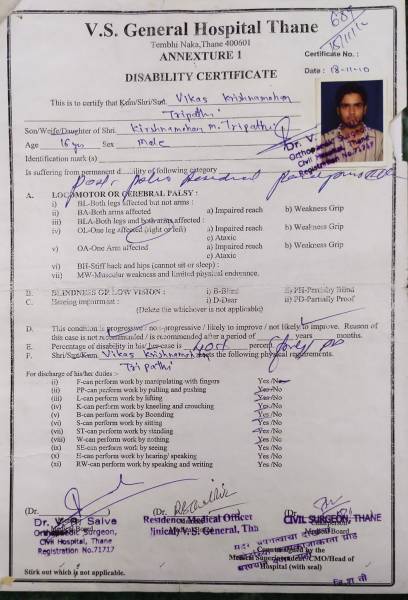 V.S. General Hospital Thane
Tembhi Naka,Thane 400601
ANNEXTURE 1
DISABILITY CERTIFICATE
Certificate No. :
Date : 18-11-10
This is to certify that Kum/Shri/Smt. Vikas Krishnamohan
Tripathi
Son/Weife/Daughter of Shri. Kirshnamohan m. Tripathi
Age 16 yrs Sex male
Identification mark (s)
Is suffering from permanent disability of following category
Post polio Residual
A. LOCOMOTOR OR CEREBRAL PALSY :
i) BL-Both legs affected but not arms :
ii) BA-Both arms affected a) Impaired reach b) Weakness Grip
iii) BLA-Both legs and both arms affected :
iv) OL-One leg affected (right or left) a) Impaired reach b) Weakness Grip
c) Ataxic
v) OA-One Arm affected a) Impaired reach b) Weakness Grip
c) Ataxic
vi) BH-Stiff back and hips (cannot sit or sleep) :
vii) MW-Muscular weakness and limited physical endurance.
B. BLINDNESS OR LOW VISION : i) B-Blind ii) PH-Partially Blind
C. Hearing impairment : i) D-Dear ii) PD-Partially Proof
(Delete the whichever is not applicable)
D. This condition is progressive / no:-progressive / likely to improve / not likely to improve. Reason of
this case is not recommended / is recommended after a period of years months.
E. Percentage of disability in his/her case is 40% percent
F. Shri/Smt/Kum Vikas Krishnamohan meets the following physical requirements.
Tripathi
For discharge of his/her duties :-
(i) F-can perform work by manipulating with fingers Yes/No
(ii) PP-can perform work by pulling and pushing Yes/No
(iii) L-can perform work by lifting Yes/No
(iv) K-can perform work by kneeling and crouching Yes/No
(v) B-can perform work by Boonding Yes/No
(vi) S-can perform work by sitting Yes/No
(vii) ST-can perform work by standing Yes/No
(viii) W-can perform work by nothing Yes/No
(ix) SE-can perform work by seeing Yes/No
(x) E-can perform work by hearing/ speaking Yes/No
(xi) RW-can perform work by speaking and writing Yes/No
(Dr. (Dr. (Dr.
Dr. V. A. Salve
Orthopaedic Surgeon,
Civil Hospital, Thane
Registration No.71717
Residence Medical Officer
V.S. General, Tha
CIVIL SURGEON, THANE
Medical Board
Countersigned by the
Medical Superintendent/CMO/Head of
Hospital (with seal)
Stick out which is not applicable.